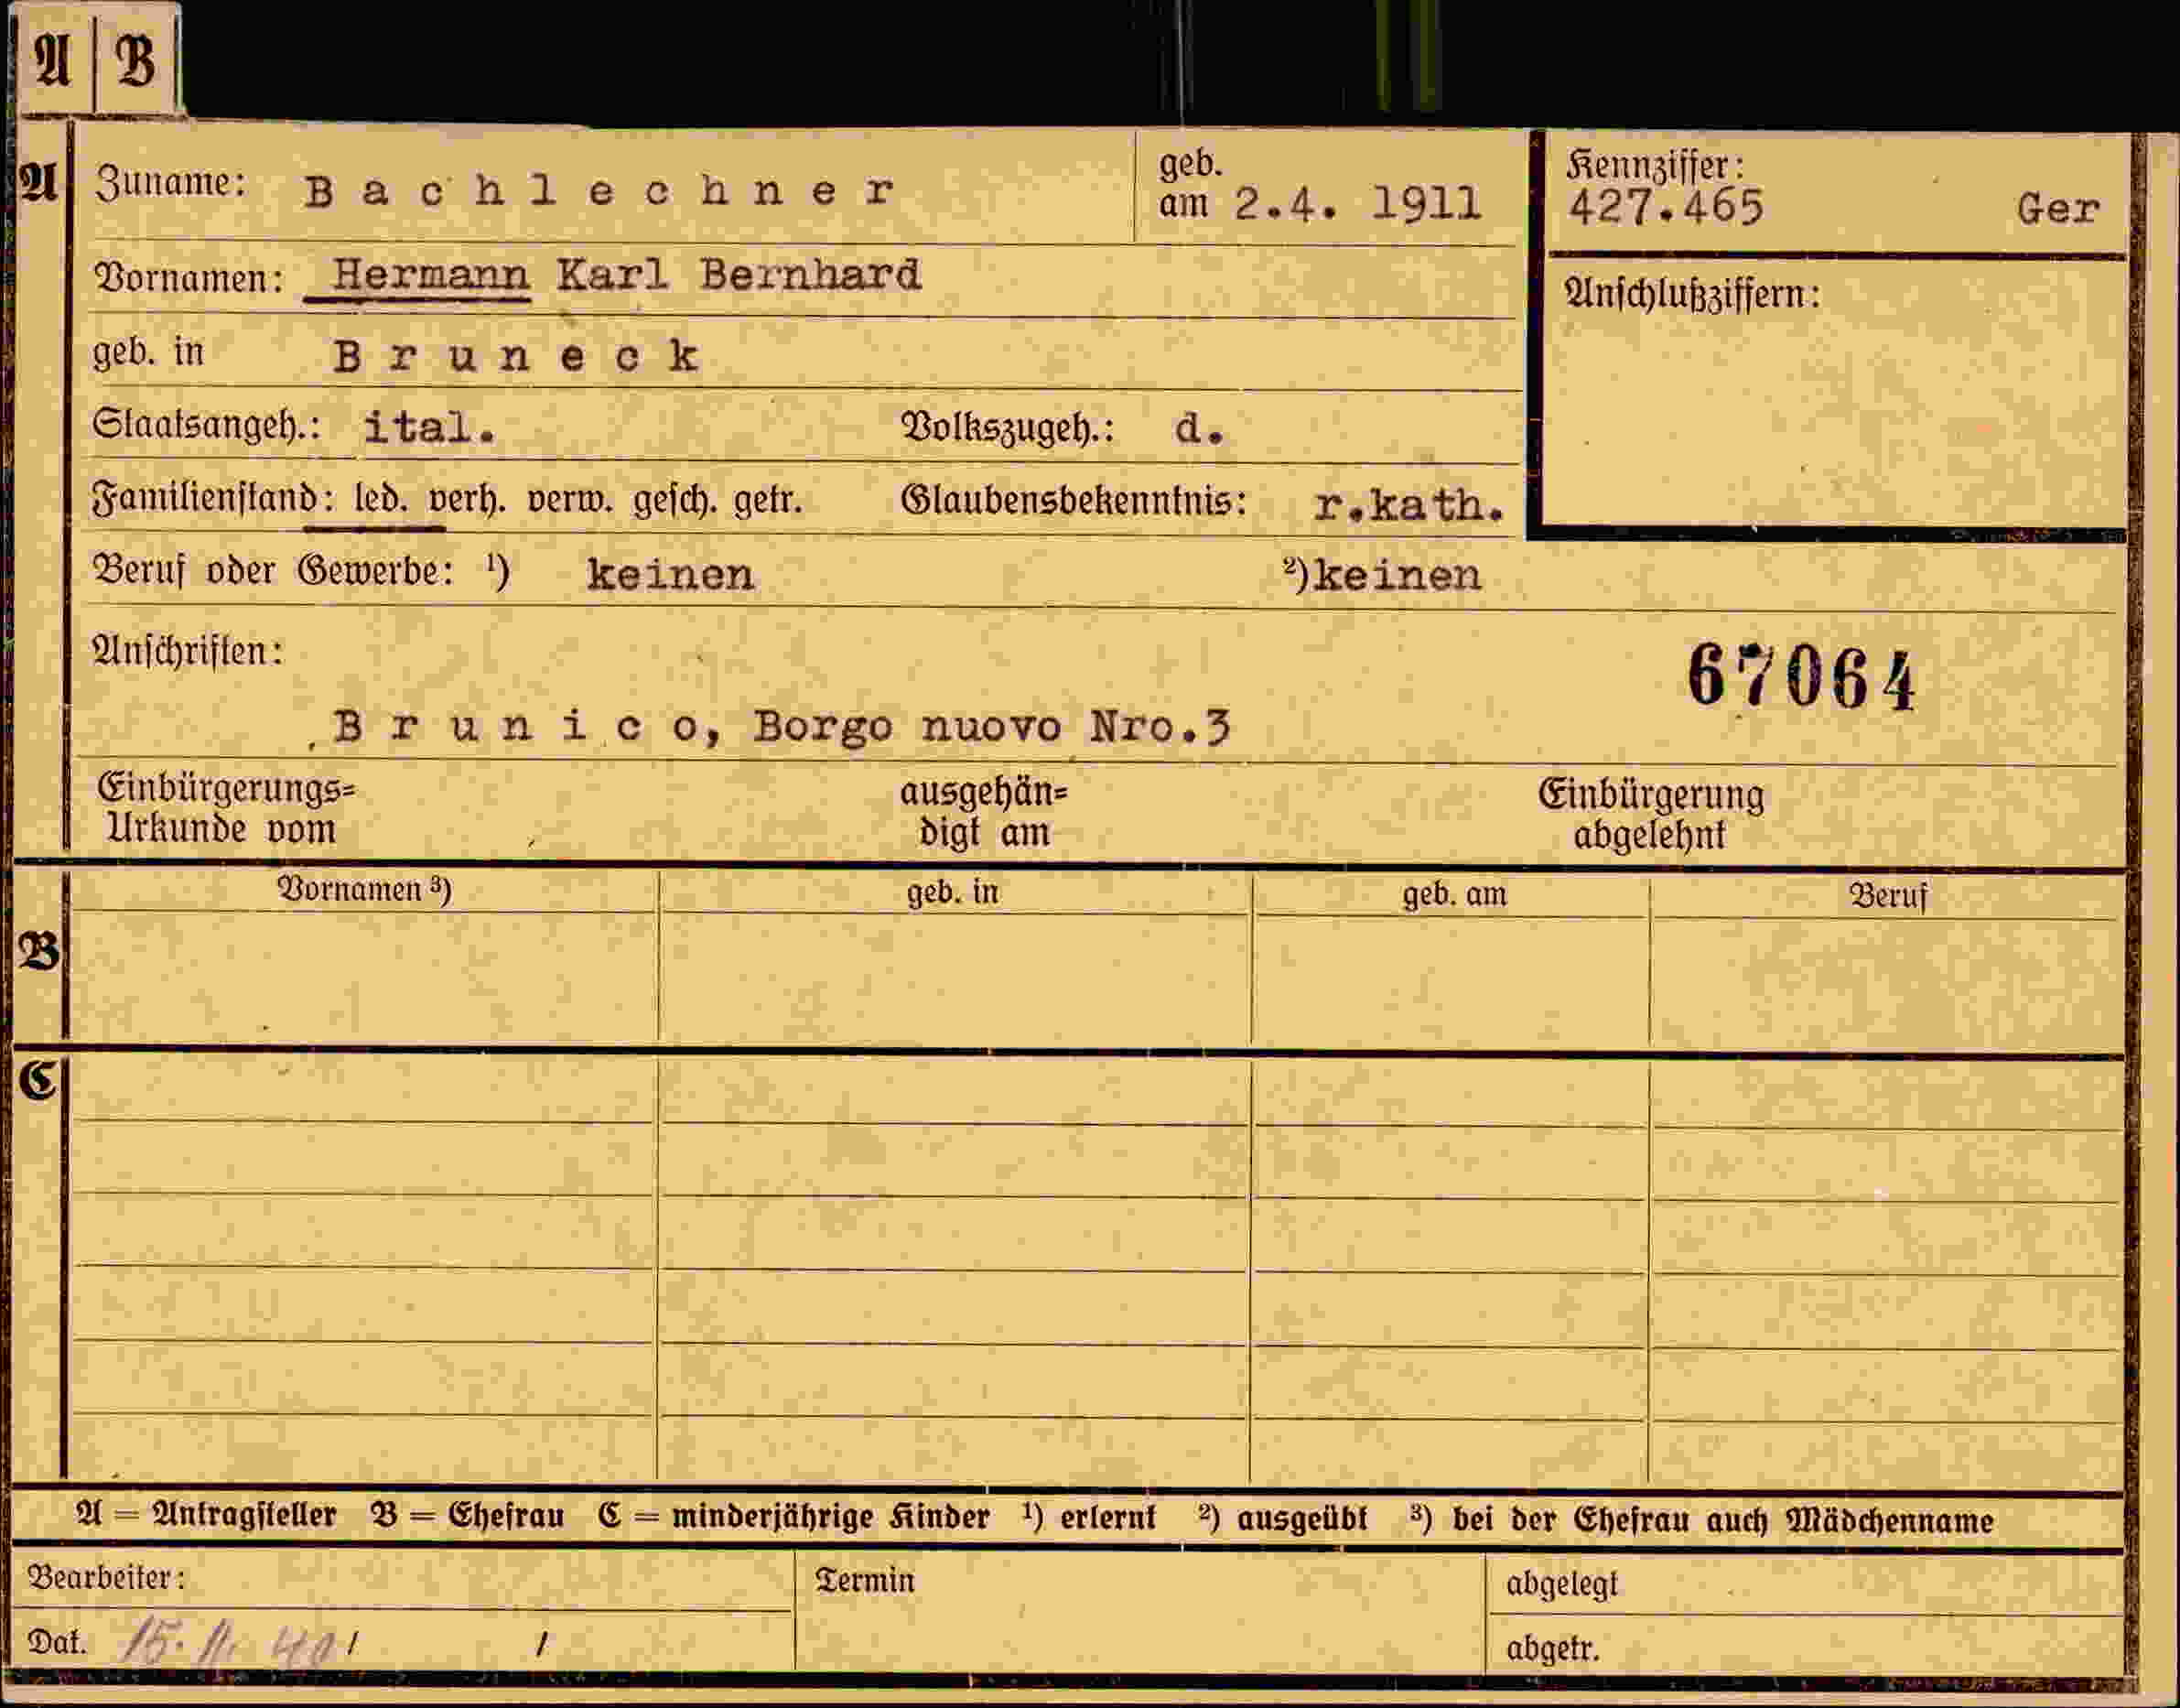 A B
A Zuname: Bachlechner geb. am 2.4. 1911 Kennziffer: 427.465 Ger
Vornamen: Hermann Karl Bernhard Anschlußziffern:
geb. in Bruneck
Staatsangeh.: ital. Volkszugeh.: d.
Familienstand: led. verh. verw. gesch. getr. Glaubensbekenntnis: r.kath.
Beruf oder Gewerbe: ¹) keinen ²) keinen
Anschriften: 67064
Brunico, Borgo nuovo Nro.3
Einbürgerungs= Urkunde vom ausgehän= digt am Einbürgerung abgelehnt
Vornamen ³) geb. in geb. am Beruf
B
C
A = Antragsteller B = Ehefrau C = minderjährige Kinder ¹) erlernt ²) ausgeübt ³) bei der Ehefrau auch Mädchenname
Bearbeiter: Termin abgelegt
Dat. 15. 11. 40 / / abgetr.